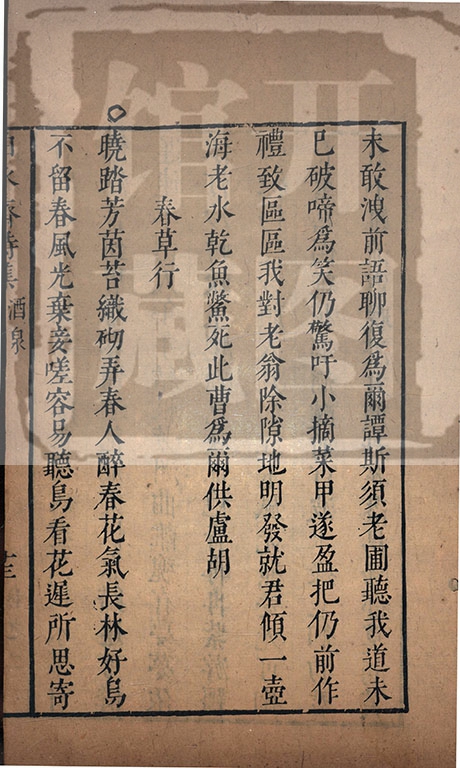 未敢洩前語聊復為爾譚斯須老圃聽我道未
已破啼為笑仍驚吁小摘菜甲遂盈把仍前作
禮致區區我對老翁除隙地明發就君傾一壺
海老水乾魚鱉死此曹為爾供盧胡
春草行
曉踏芳茵苔織砌弄春人醉春花氣長林好鳥
不留春風光棄妾嗟容易聽鳥看花遲所思寄
酒泉